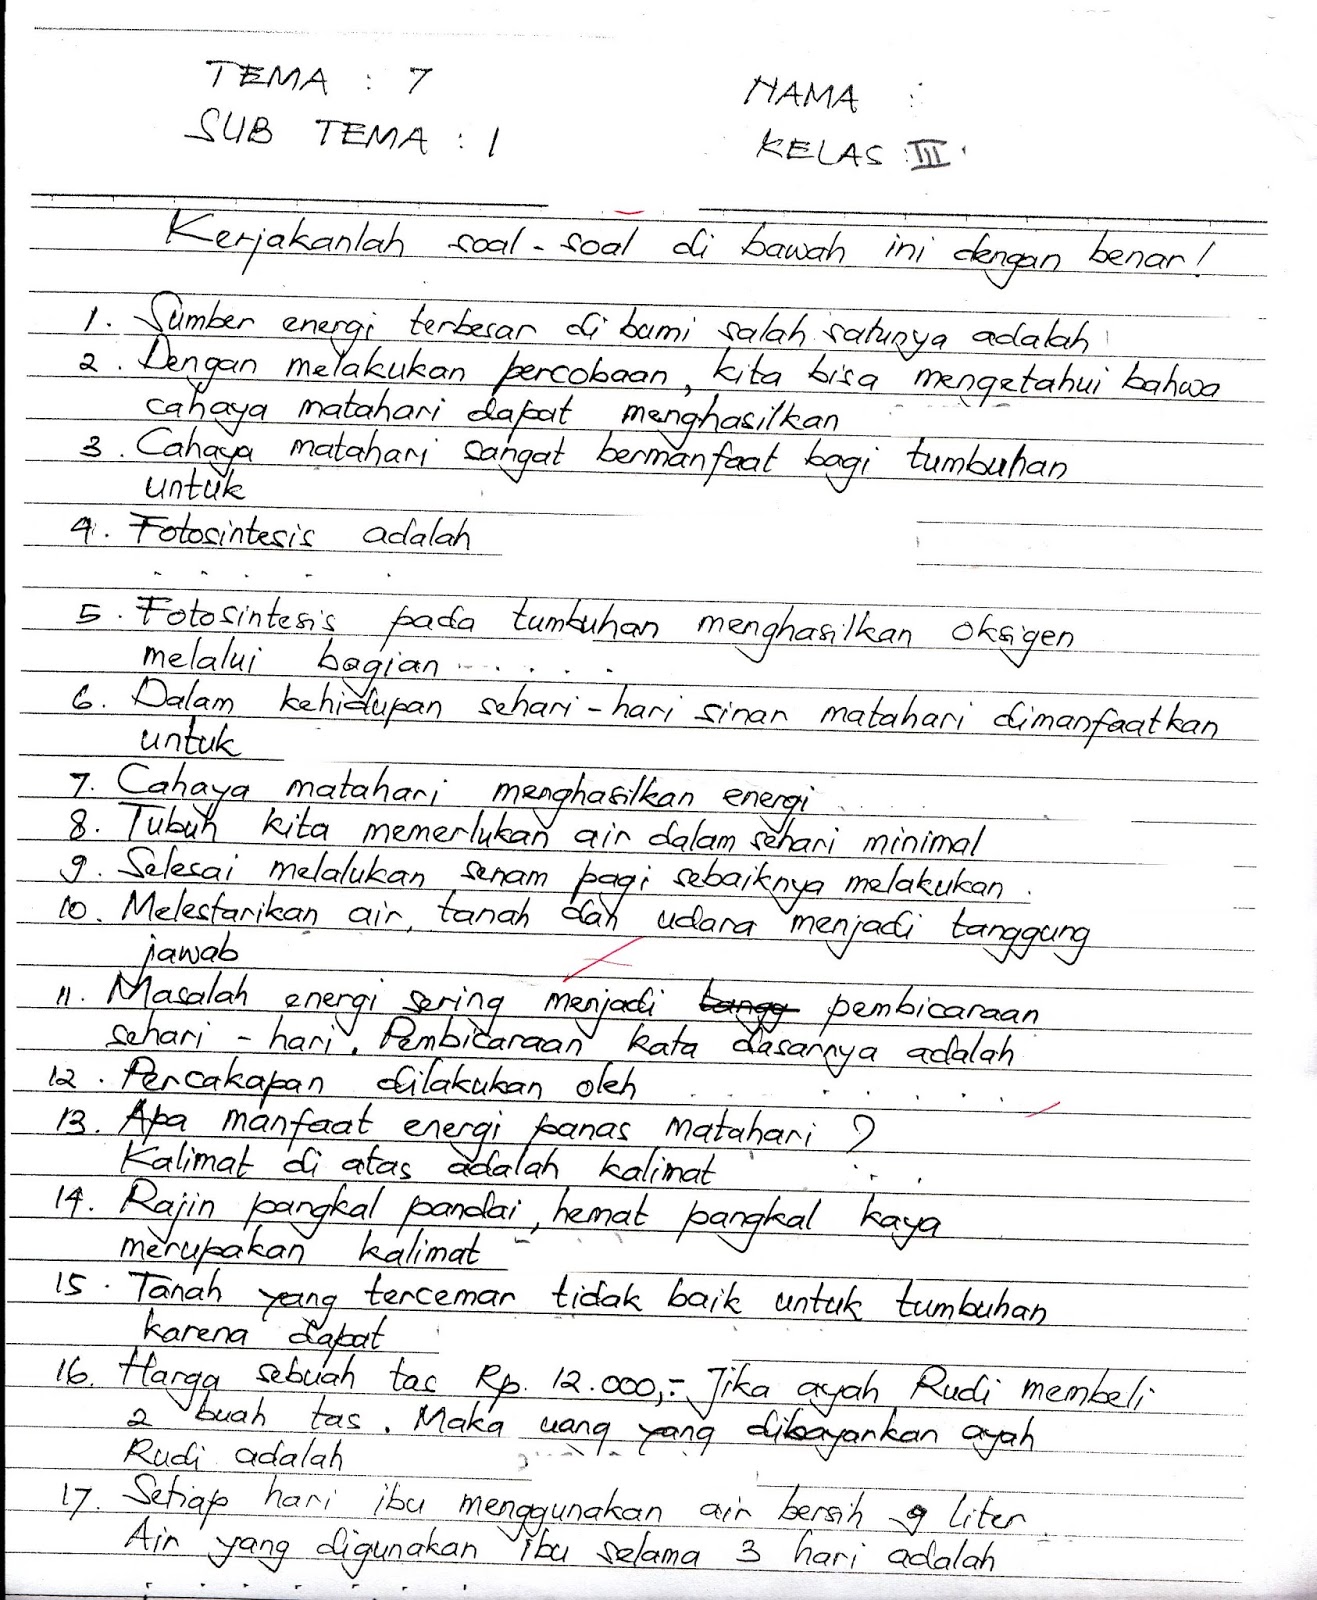 TEMA : 7
NAMA :
SUB TEMA : 1
KELAS : III
Kerjakanlah soal-soal di bawah ini dengan benar!
1. Sumber energi terbesar di bumi salah satunya adalah
2. Dengan melakukan percobaan, kita bisa mengetahui bahwa
cahaya matahari dapat menghasilkan
3. Cahaya matahari sangat bermanfaat bagi tumbuhan
untuk
4. Fotosintesis adalah
. . . . .
5. Fotosintesis pada tumbuhan menghasilkan oksigen
melalui bagian . . . . . .
6. Dalam kehidupan sehari-hari sinan matahari dimanfaatkan
untuk
7. Cahaya matahari menghasilkan energi
8. Tubuh kita memerlukan air dalam sehari minimal
9. Selesai melalukan senam pagi sebaiknya melakukan .
10. Melestarikan air, tanah dan udara menjadi tanggung
jawab
11. Masalah energi sering menjadi tangg pembicaraan
sehari-hari. Pembicaraan kata dasarnya adalah
12. Percakapan dilakukan oleh . . . . . .
13. Apa manfaat energi panas matahari ?
Kalimat di atas adalah kalimat . . .
14. Rajin pangkal pandai, hemat pangkal kaya
merupakan kalimat
15. Tanah yang tercemar tidak baik untuk tumbuhan
karena dapat
16. Harga sebuah tas Rp. 12.000,- Jika ayah Rudi membeli
2 buah tas. Maka uang yang dibayarkan ayah
Rudi adalah
17. Setiap hari ibu menggunakan air bersih 9 liter
Air yang digunakan ibu selama 3 hari adalah
. . . . . . .